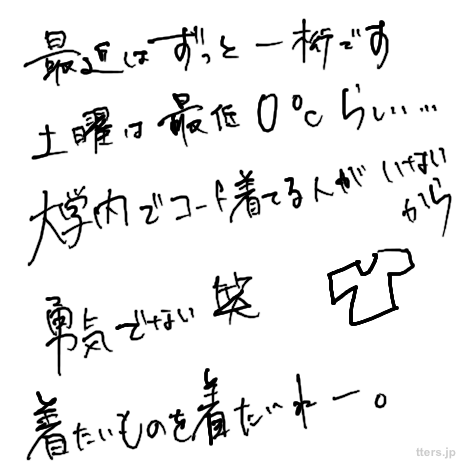 最近はずっと一桁です
土曜は最低0℃らしい…
大学内でコート着てる人がいないから
勇気でない笑
着たいものを着たいねー。
tters.jp